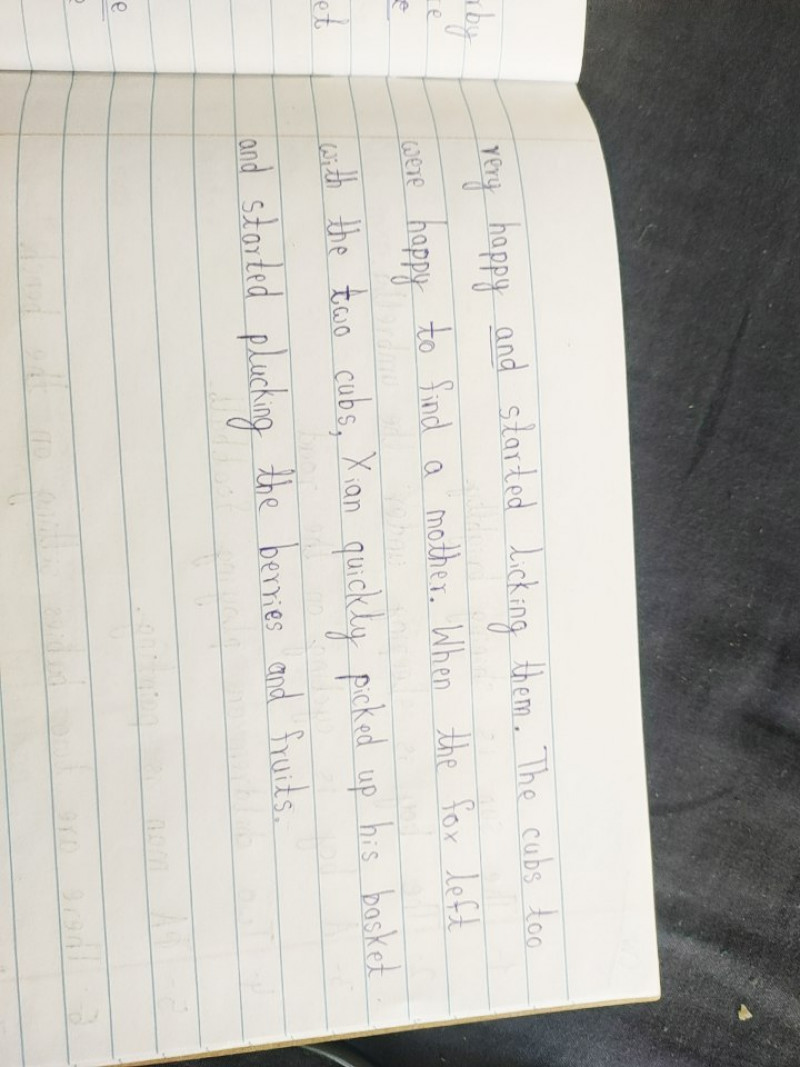 very happy and started licking them. The cubs too
were happy to find a mother. When the fox left
with the two cubs, Xian quickly picked up his basket
and started plucking the berries and fruits.